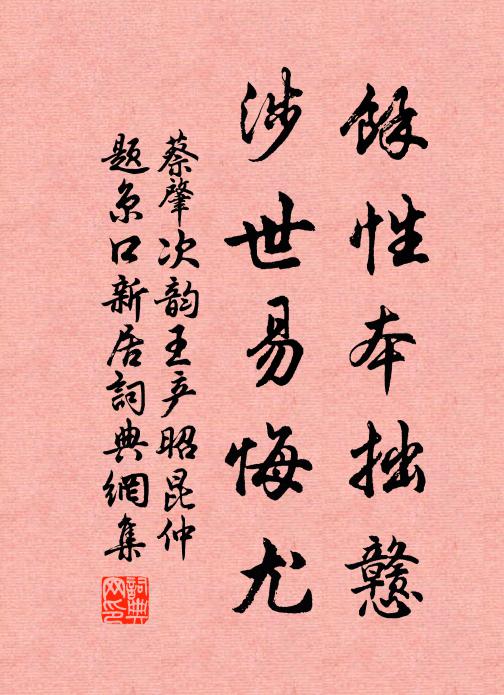 餘性本拙戇
涉世易悔尤
蔡肇次韵王彦昭昆仲
题京口新居詞典網集
詞典网印